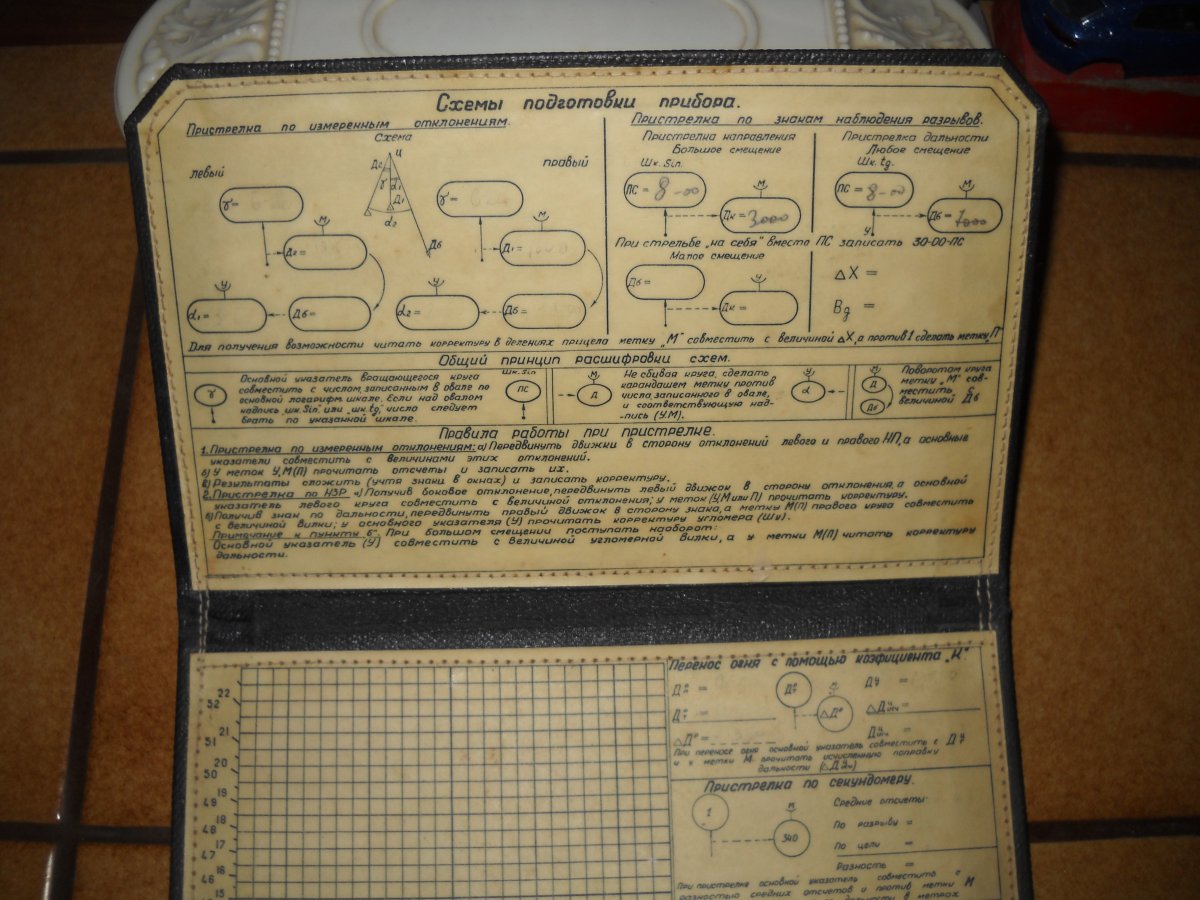 Схемы подготовки прибора.
Пристрелка по измеренным отклонениям.
Схема
левый
правый
Ц
Д2
γ
α1
Д1
α2
Дб
γ =
М
Д2 =
У
α1 =
Дб =
γ =
М
Д1 =
У
α2 =
Дб =
Пристрелка по знакам наблюдения разрывов.
Пристрелка направления
Большое смещение
Шк. Sin.
ПС = 8-00
М
Дк = 3000
Пристрелка дальности
Любое смещение
Шк. tg.
ПС = 8-00
У
М
Дб = 1000
При стрельбе „на себя" вместо ПС записать 30-00-ПС
Малое смещение
Дб =
У
Дк =
ΔX =
Bд =
Для получения возможности читать корректуру в делениях прицела метку „М" совместить с величиной ΔX, а против 1 сделать метку „П"
Общий принцип расшифровки схем.
γ
Основной указатель вращающегося круга
совместить с числом, записанным в овале по
основной логарифм. шкале. Если над овалом
надпись „шк. Sin" или „шк. tg," число следует
брать по указанной шкале.
Шк. Sin
ПС
М
Д
Не сбивая круга, сделать
карандашем метку против
числа, записанного в овале,
и соответствующую над-
-пись (У.М.)
У
α
М
Д
Дб
Поворотом круга
метку „М" сов-
местить с
величиной Дб
Правила работы при пристрелке.
1. Пристрелка по измеренным отклонениям: а) Передвинуть движки в сторону отклонений левого и правого НП, а основные
указатели совместить с величинами этих отклонений.
б) У меток У, М(П) прочитать отсчеты и записать их.
в) Результаты сложить (учтя знаки в окнах) и записать корректуру.
2. Пристрелка по НЗР а) Получив боковое отклонение, передвинуть левый движок в сторону отклонения, а основной
указатель левого круга совместить с величиной отклонения; у меток (У, М или П) прочитать корректуру.
б) Получив знак по дальности, передвинуть правый движок в сторону знака, а метку М(П) правого круга совместить
с величиной вилки; у основного указателя (У) прочитать корректуру угломера (Шу).
Примечание к пункту б: При большом смещении поступать наоборот:
Основной указатель (У) совместить с величиной угломерной вилки, а у метки М(П) читать корректуру
дальности.
22
52
21
51
20
50
19
49
18
48
17
47
16
46
15
Перенос огня с помощью коэфициента „К"
При переносе огня основной указатель совместить с
и у метки М прочитать исчисленную поправку
дальности
Пристрелка по секундомеру.
1
М
340
Средние отсчеты:
По разрыву =
По цели =
Разность =
При пристрелке основной указатель совместить с
разностью средних отсчетов и против метки М
дальности в метрах